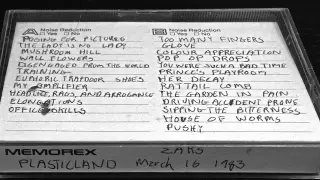 A Noise Reduction
Yes No
POSING FOR PICTURES
THE LADY IS NO LADY
MUSHROOM HILL
WALL FLOWERS
DISENGAGED FROM THE WORLD
TRAINING
EUPHORIC TRAPDOOR SHOES
MY
HEADLIZ, RAGS, AND ARROGANCE
ELONGATIONS
OFFICE SKILLS
B Noise Reduction
Yes No
TOO MANY FINGERS
GLOVE
COLOUR APPRECIATION
POP OP DROPS
YOU WERE SUCH A BAD TIME
PRINCE'S PLAYROOM
HER DECAY
RAT TAIL COMB
THE GARDEN IN PAIN
DRIVING ACCIDENT PRONE
SIPPING THE BITTERNESS
HOUSE OF WORMS
PUSHY
MEMOREX
ZAKS
PLASTICLAND March 16 1983